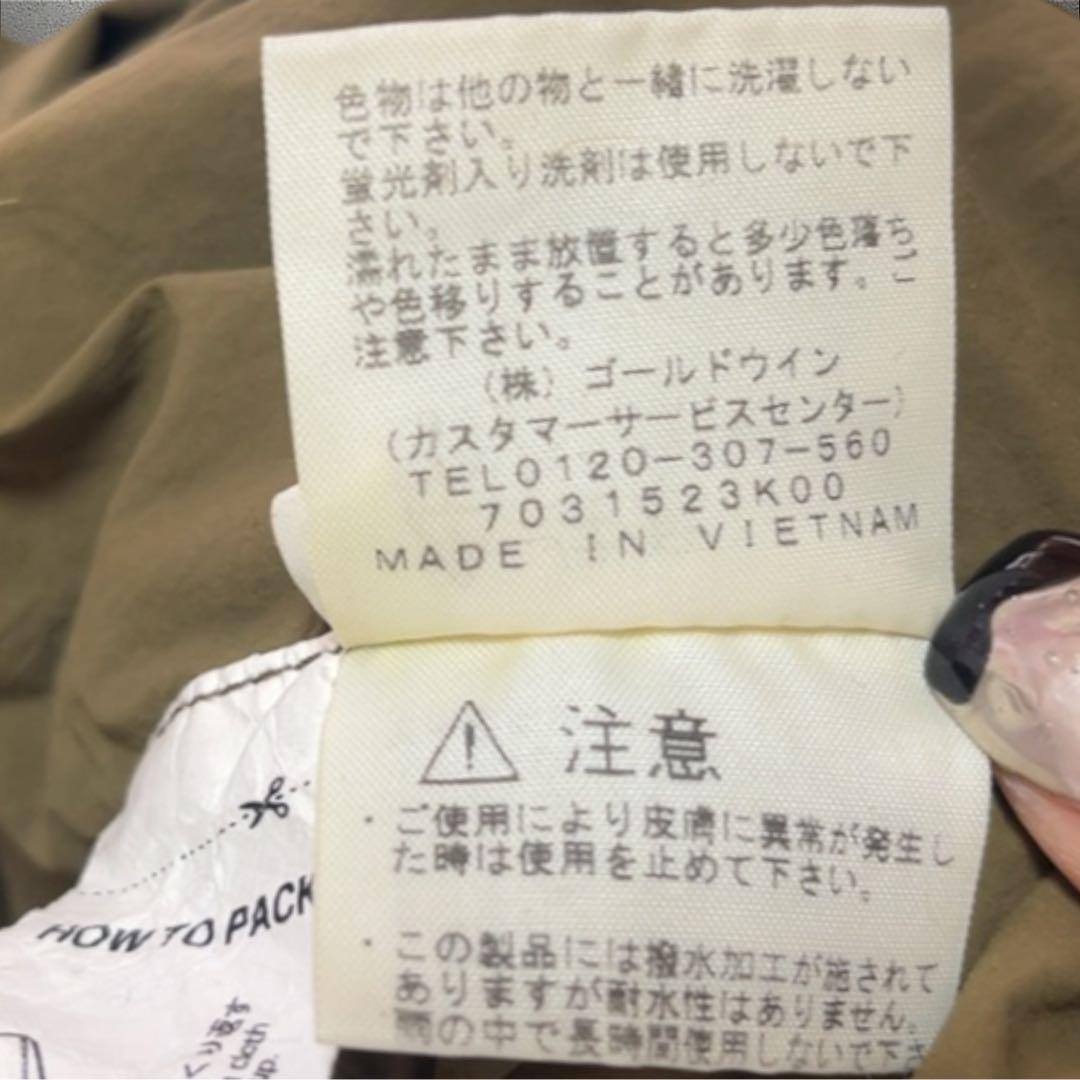 色物は他の物と一緒に洗濯しない
で下さい。
蛍光剤入り洗剤は使用しないで下
さい。
濡れたまま放置すると多少色落ち
や色移りすることがあります。ご
注意下さい。
(株) ゴールドウイン
(カスタマーサービスセンター)
TEL0120-307-560
7031523K00
MADE IN VIETNAM
注意
・ご使用により皮膚に異常が発生し
た時は使用を止めて下さい。
・この製品には撥水加工が施されて
ありますが耐水性はありません。
雨の中で長時間使用しないで下さ
HOW TO PACK
くり返す
cloth
up.